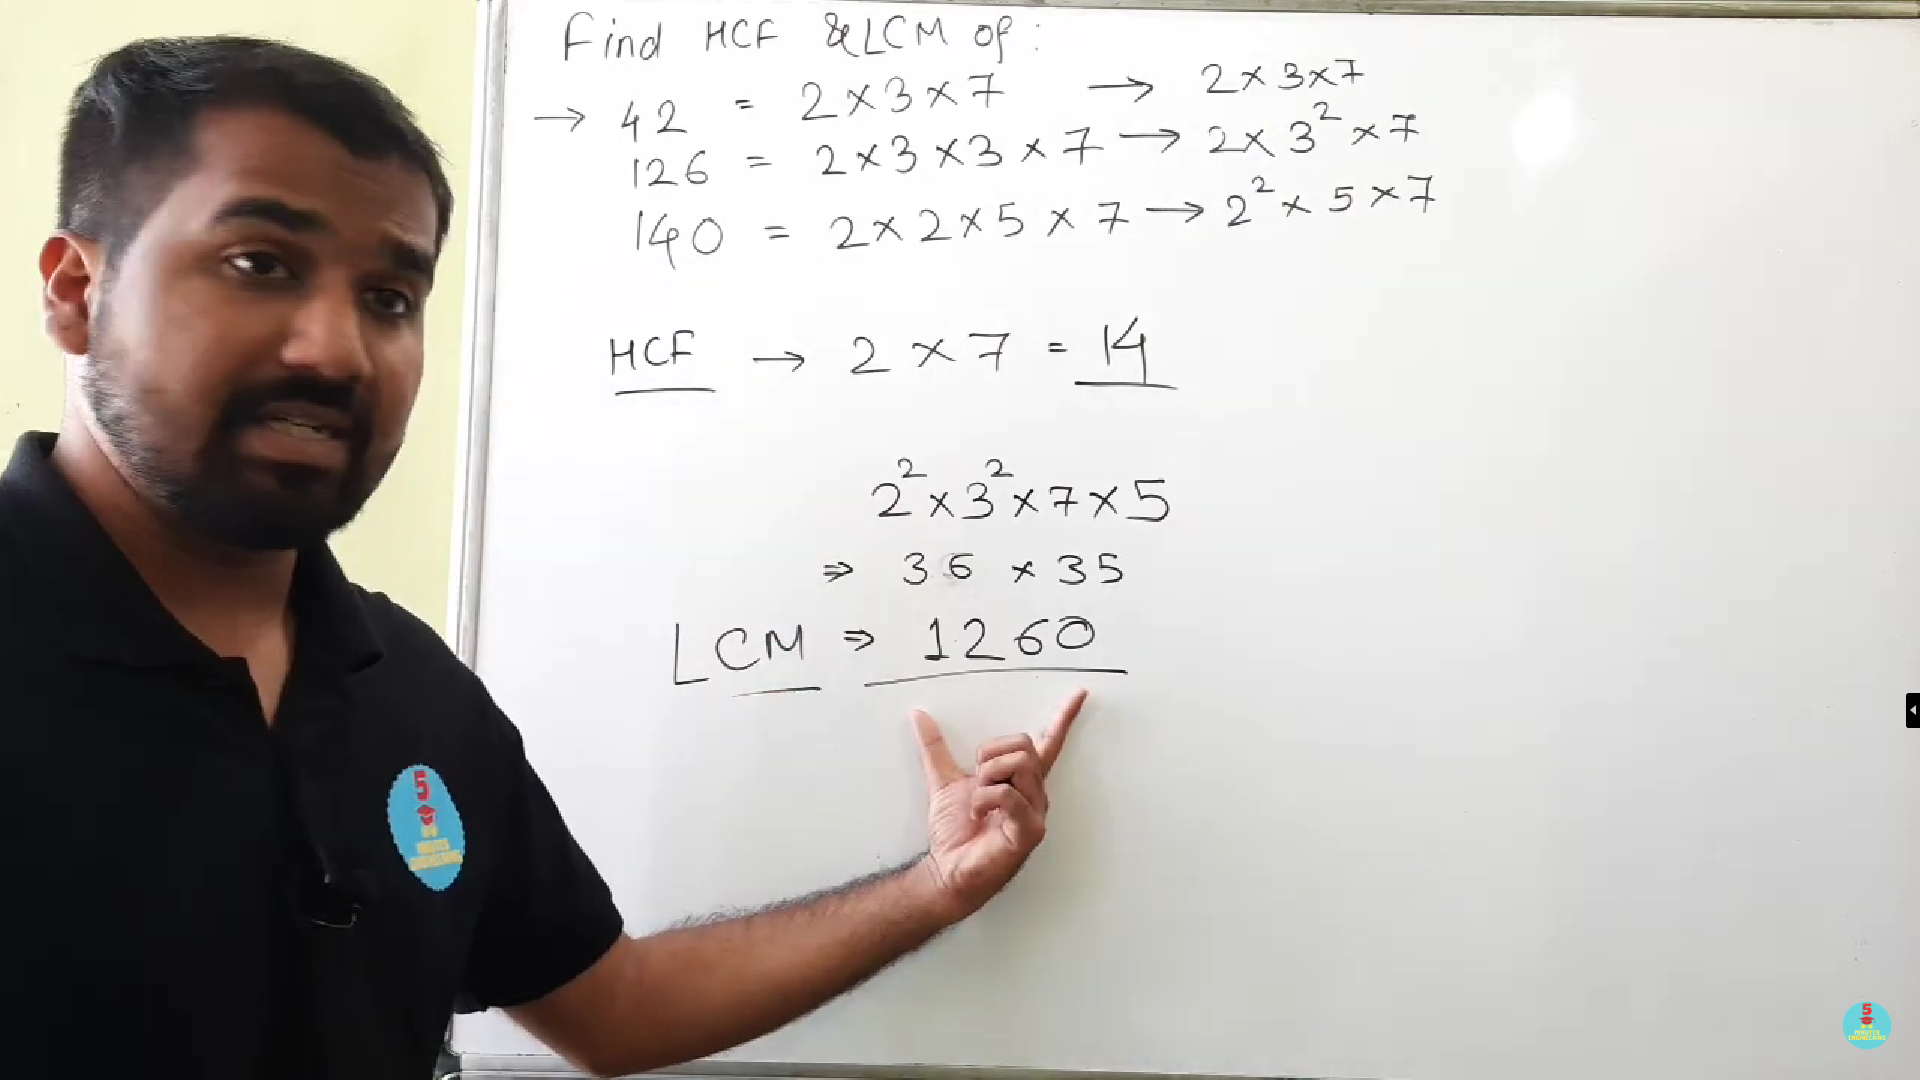 Find HCF & LCM of :
→ 42 = 2×3×7 → 2×3×7
126 = 2×3×3×7 → 2×3²×7
140 = 2×2×5×7 → 2²×5×7
HCF → 2×7 = 14
2²×3²×7×5
⇒ 36 × 35
LCM ⇒ 1260
5
MINUTES
ENGINEERING
5
MINUTES
ENGINEERING